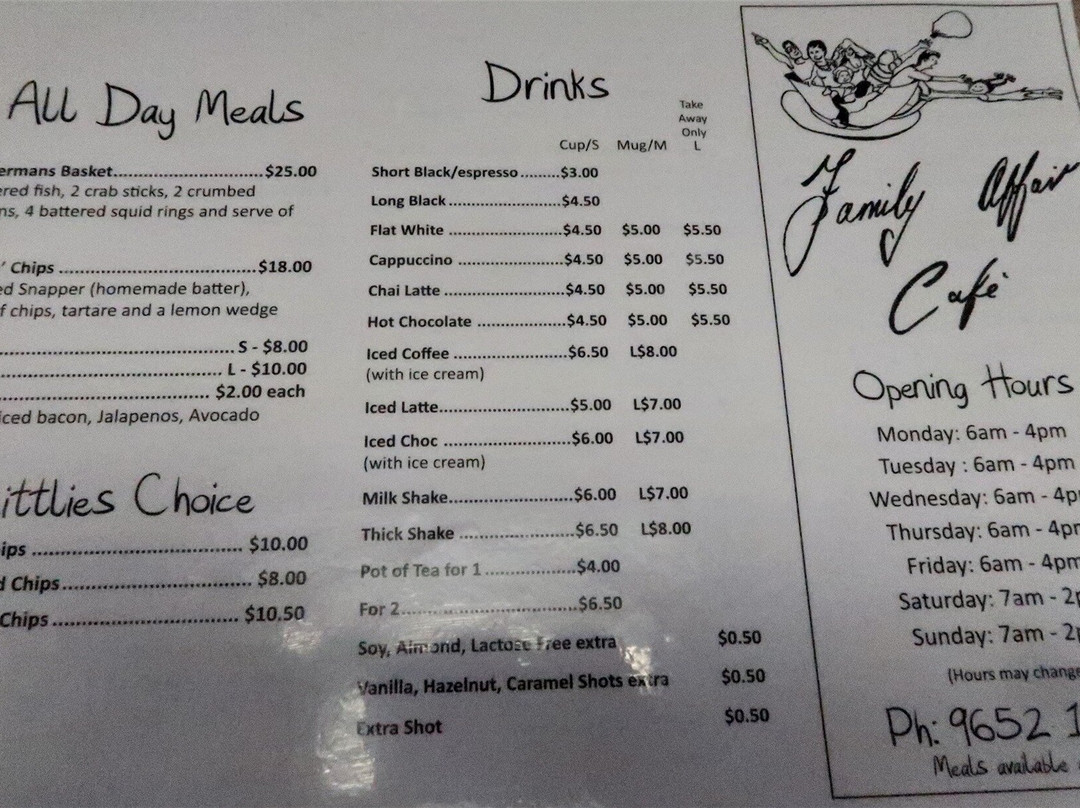 All Day Meals
Basket..................................$25.00
fish, 2 crab sticks, 2 crumbed
4 battered squid rings and serve of
Chips ............................................$18.00
Snapper (homemade batter),
chips, tartare and a lemon wedge
S - $8.00
L - $10.00
$2.00 each
bacon, Jalapenos, Avocado
Choice
$10.00
Chips.................................... $8.00
Chips...................................... $10.50
Drinks
Take
Away
Only
Cup/S Mug/M L
Short Black/espresso.........$3.00
Long Black..........................$4.50
Flat White ..........................$4.50 $5.00 $5.50
Cappuccino ........................$4.50 $5.00 $5.50
Chai Latte ...........................$4.50 $5.00 $5.50
Hot Chocolate ....................$4.50 $5.00 $5.50
Iced Coffee .........................$6.50 L$8.00
(with ice cream)
Iced Latte............................$5.00 L$7.00
Iced Choc ...........................$6.00 L$7.00
(with ice cream)
Milk Shake...........................$6.00 L$7.00
Thick Shake .........................$6.50 L$8.00
Pot of Tea for 1...................$4.00
For 2.....................................$6.50
Soy, Almond, Lactose Free extra $0.50
Vanilla, Hazelnut, Caramel Shots extra $0.50
Extra Shot $0.50
Family Affair
Café
Opening Hours
Monday: 6am - 4pm
Tuesday : 6am - 4pm
Wednesday: 6am - 4pm
Thursday: 6am - 4pm
Friday: 6am - 4pm
Saturday: 7am - 2
Sunday: 7am - 2
(Hours may change
Ph: 9652 1
Meals available